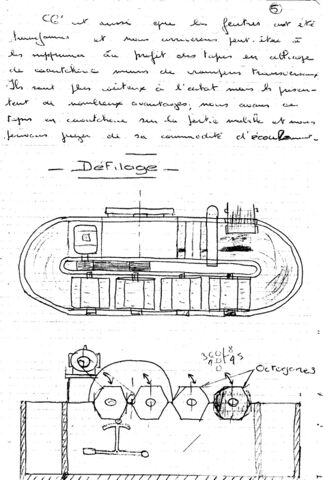 (5)
C'est aussi que les feutres ont été
transformés et nous arriverons peut-être à
les supprimer au profit des tapis en alliage
de caoutchouc munis de crampons transversaux
Ils sont plus coûteux à l'achat mais ils présen-
tent de nombreux avantages, nous avons ce
tapis en caoutchouc sur la partie mobile et nous
pouvons juger de sa commodité d'écoulement.
- Défilage -
360 8
40 45
0
Octogones